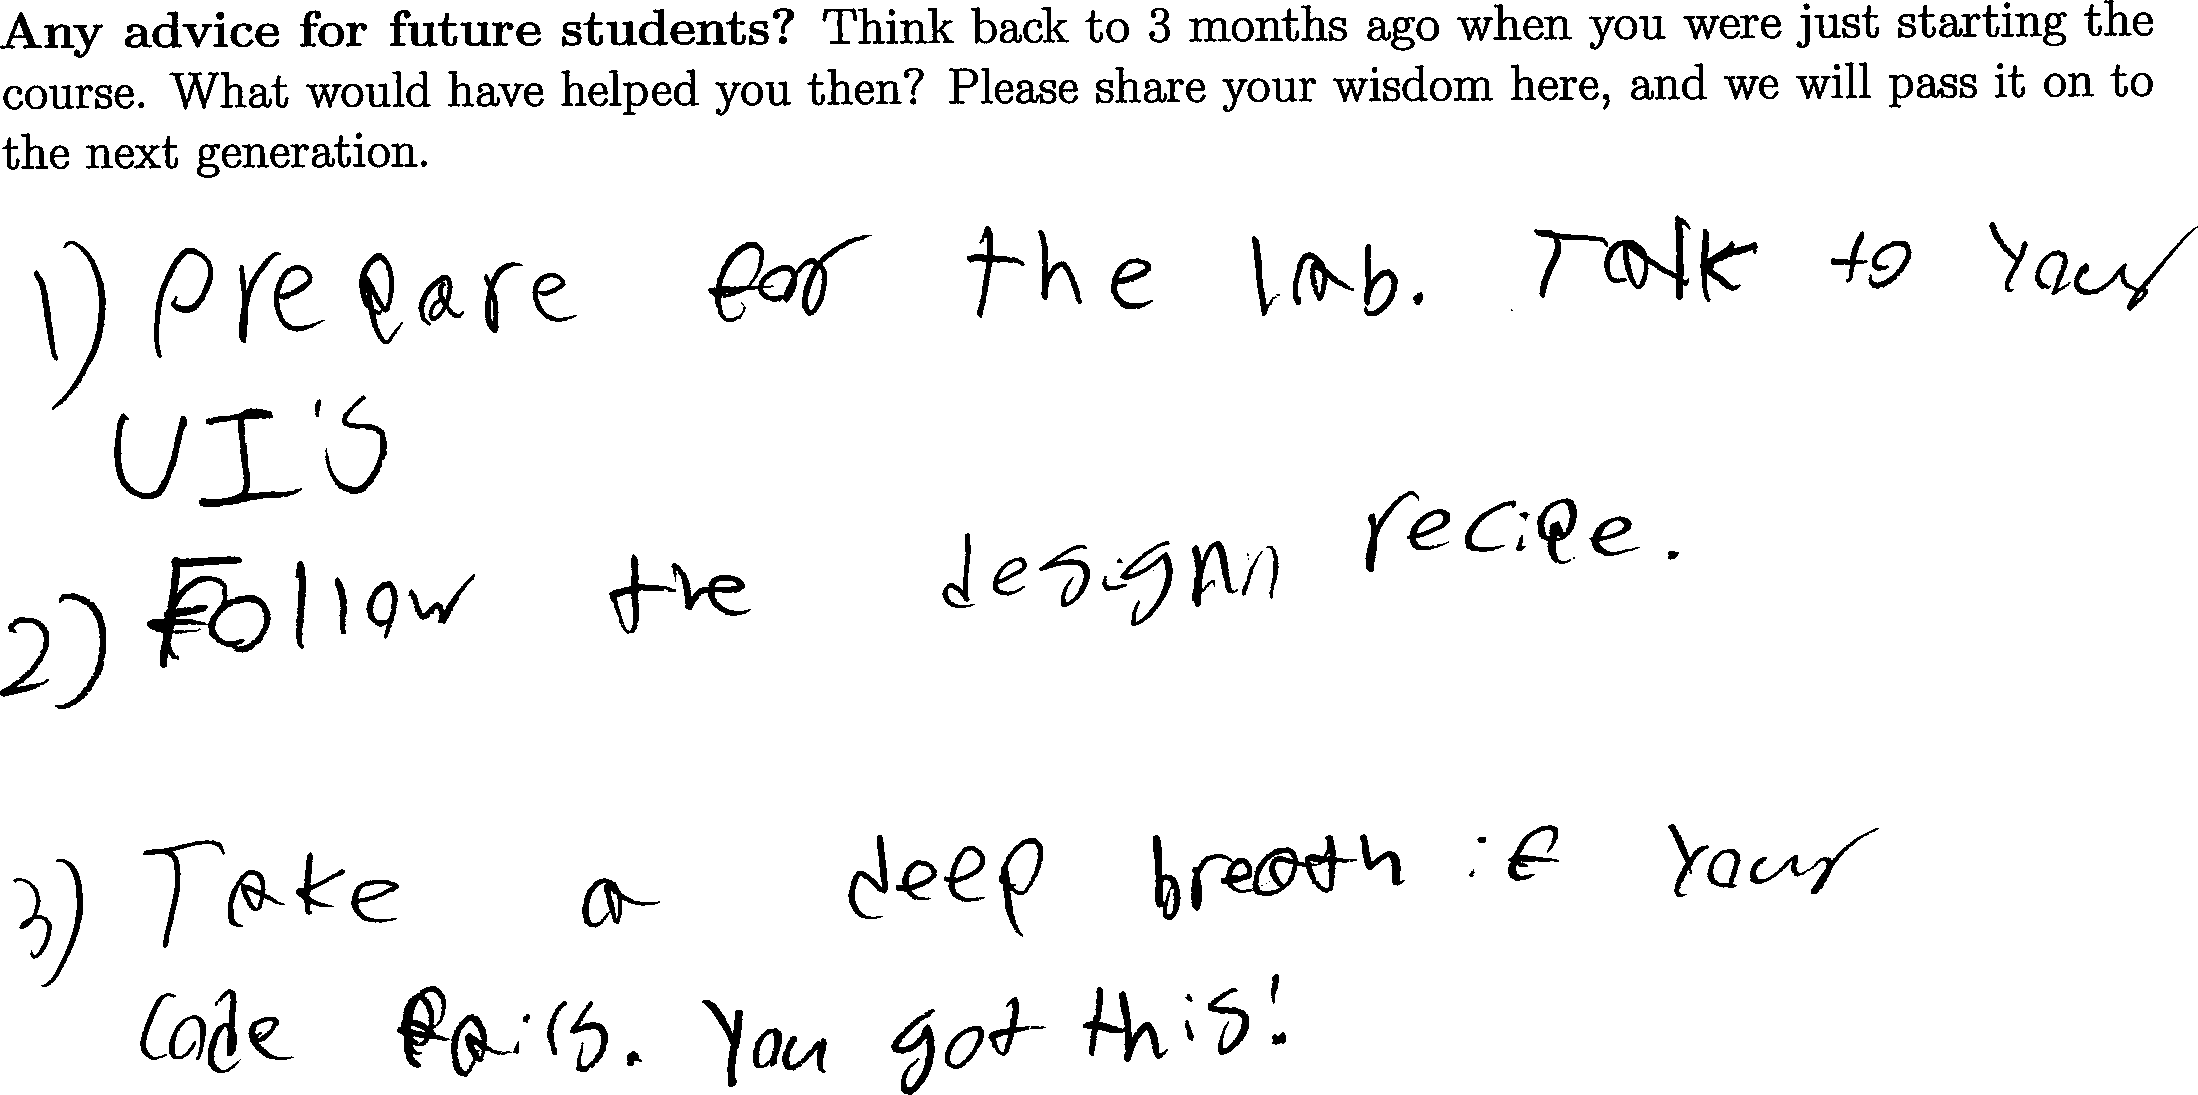 Any advice for future students? Think back to 3 months ago when you were just starting the
course. What would have helped you then? Please share your wisdom here, and we will pass it on to
the next generation.
1) Prepare for the lab. Talk to your
UI's
2) Follow the designn recipe.
3) Take a deep breath if your
code fails. You got this!